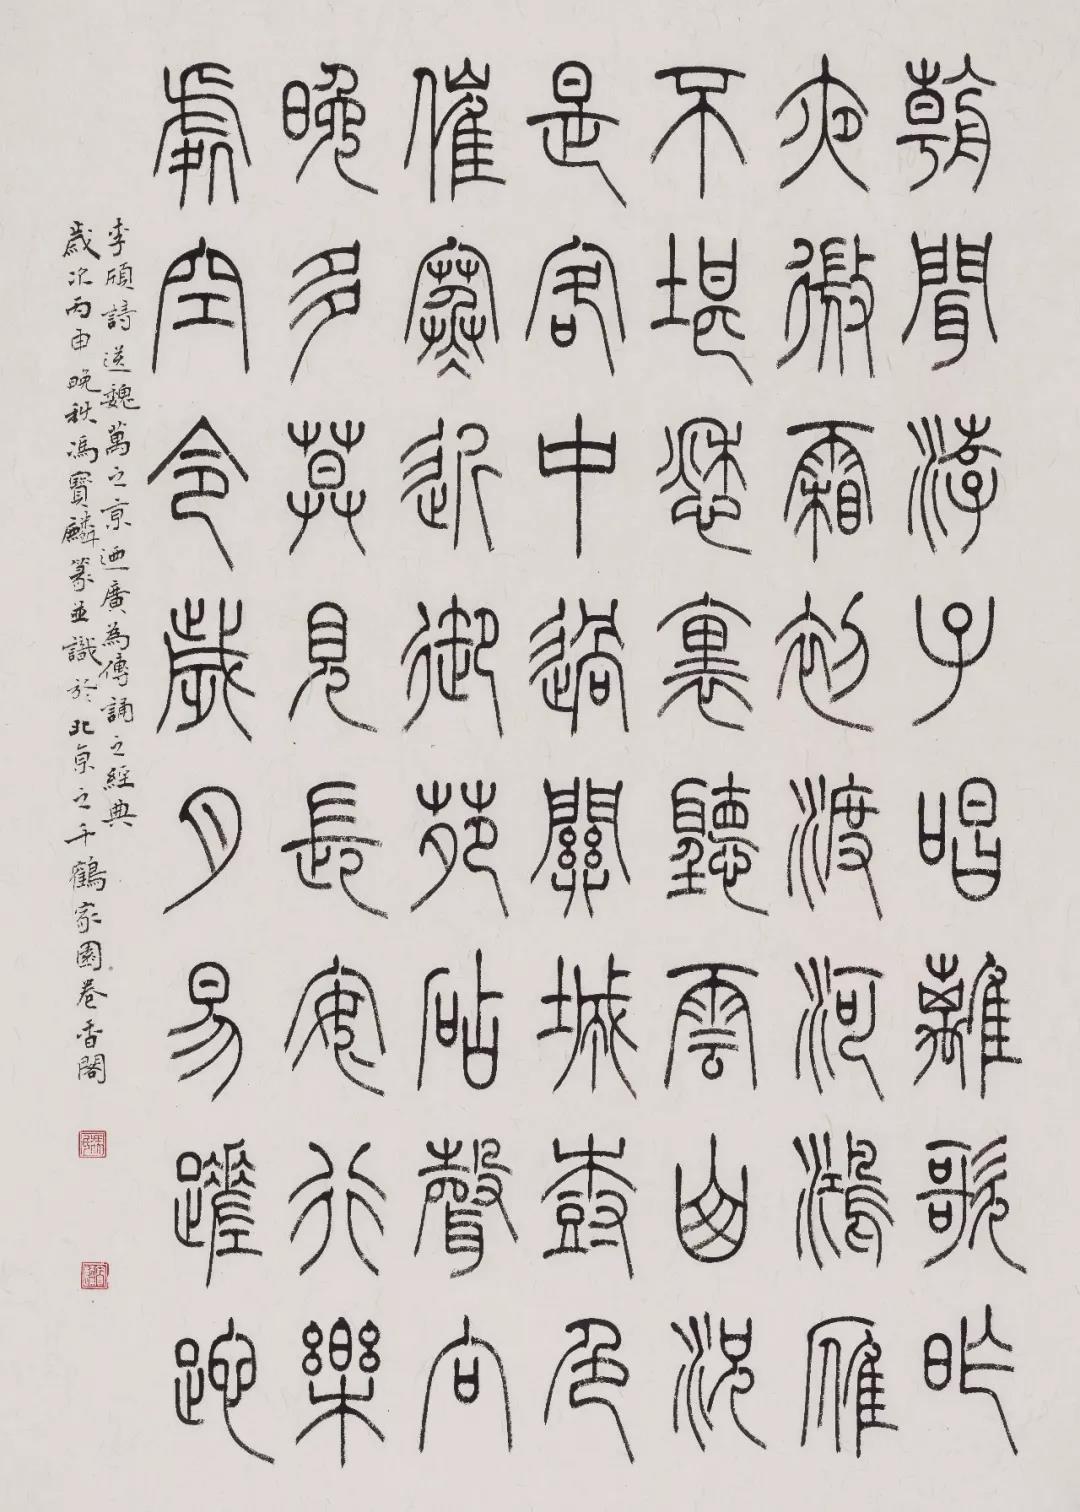 朝聞游子唱離歌昨
夜微霜初渡河鴻雁
不堪愁裏聽雲山況
是客中過關城樹色
催寒近御苑砧聲向
晚多莫見長安行樂
處空令歲月易蹉跎
李頎詩送魏萬之京迺廣為傳誦之經典
歲次丙申晚秋馮寶麟篆並識於北京之千鶴家園卷香閣